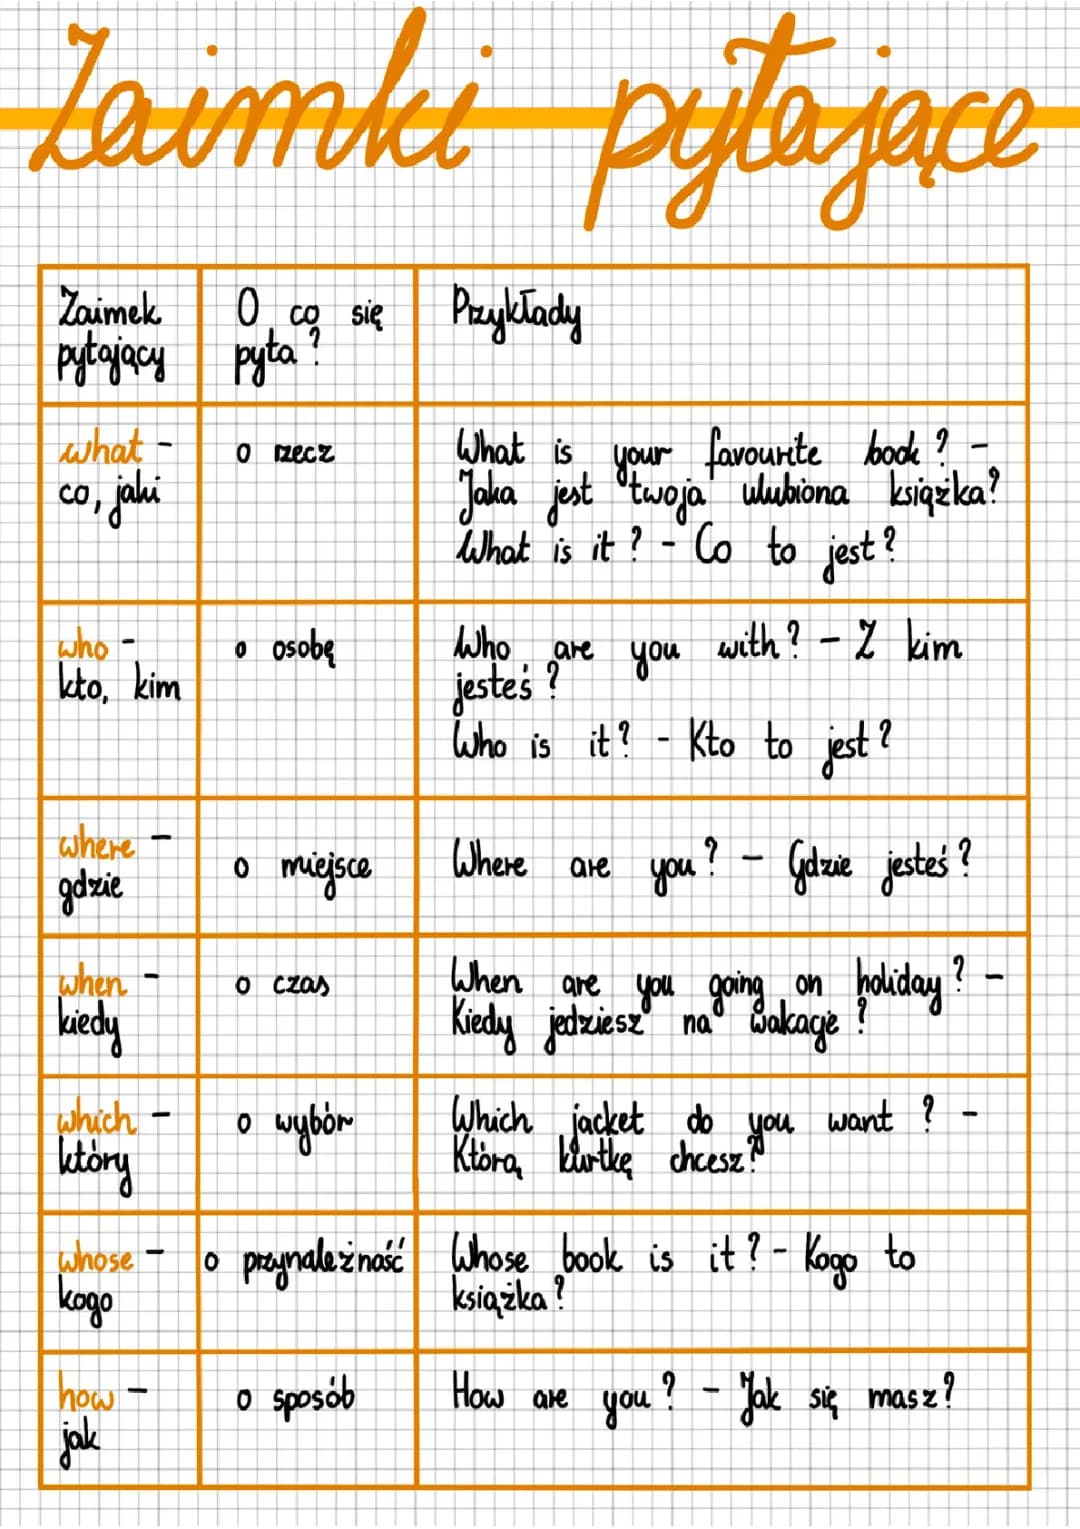 Zaimki pytające
Zaimek
pytający
O co się
pyta?
Przykłady
what -
co, jaki
o rzecz
What is your favourite book? -
Jaka jest twoja ulubiona książka?
What is it? - Co to jest?
who -
kto, kim
o osobę
Who are you with? - Z kim
jesteś?
Who is it? - Kto to jest?
where -
gdzie
o miejsce
Where are you? - Gdzie jesteś?
when -
kiedy
o czas
When are you going on holiday? -
Kiedy jedziesz na wakacje?
which -
który
o wybór
Which jacket do you want? -
Którą kurtkę chcesz?
whose -
kogo
o przynależność
Whose book is it? - Kogo to
książka?
how -
jak
o sposób
How are you? - Jak się masz?